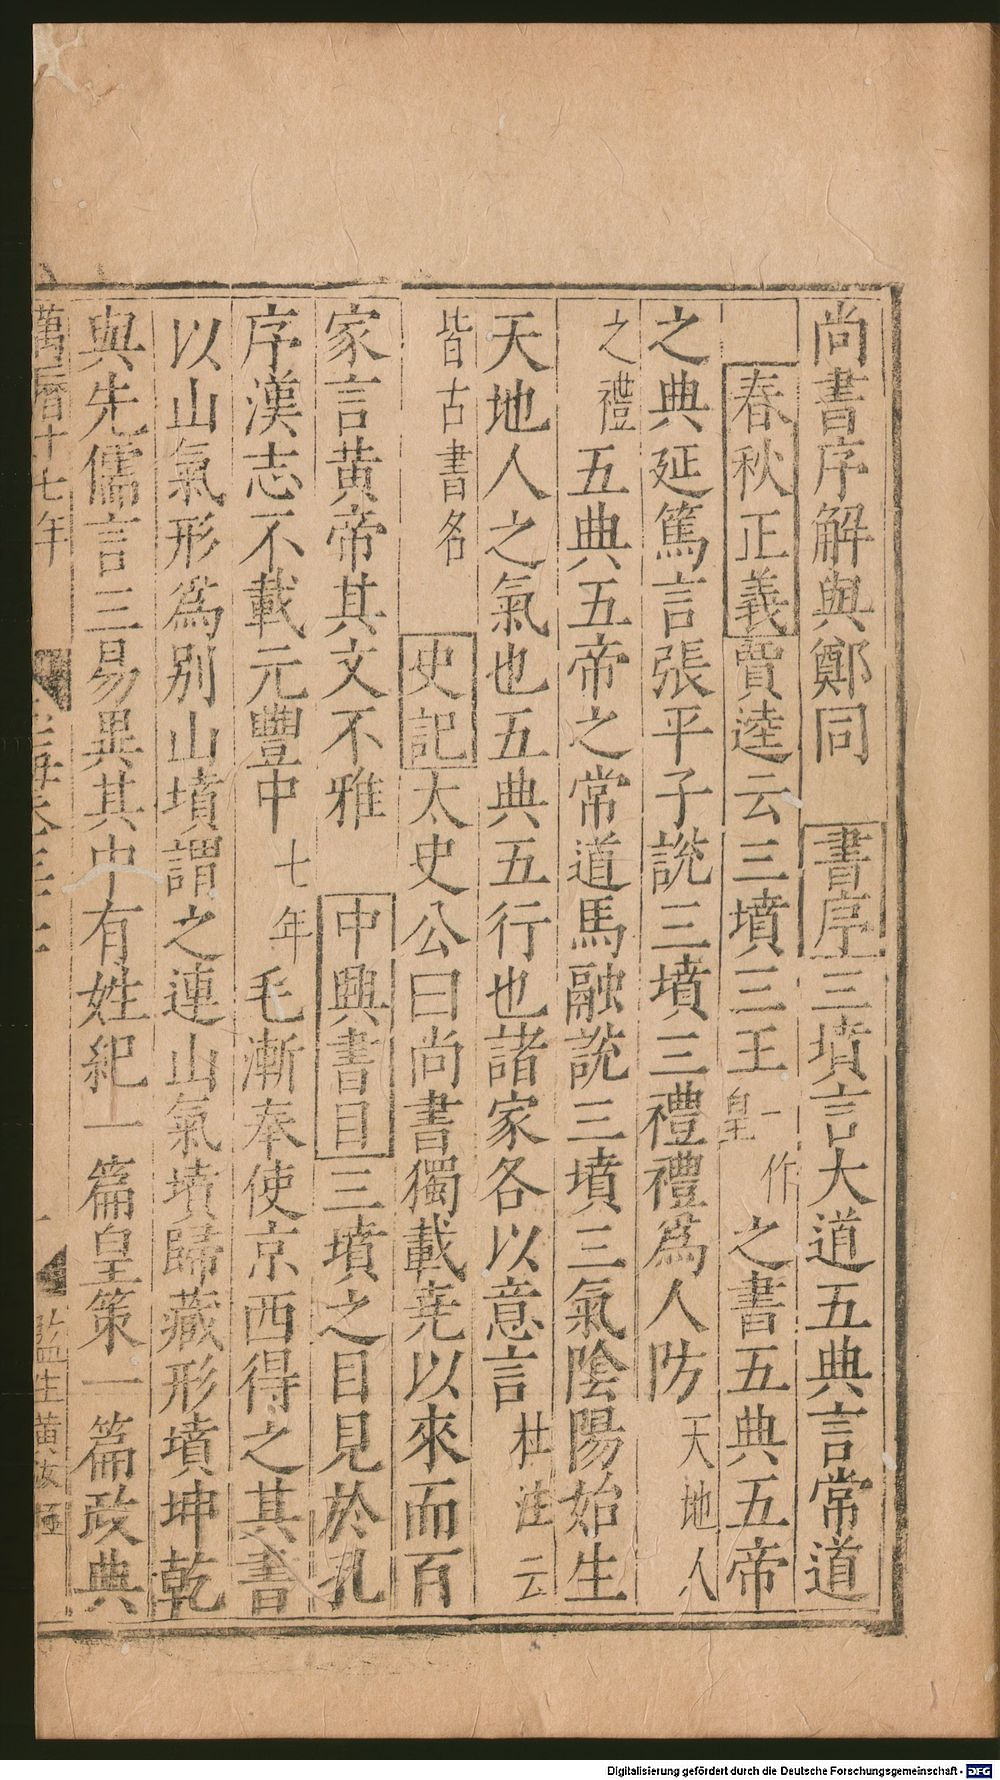 尚書序解與鄭同 書序三墳言大道五典言常道
春秋正義賈逵云三墳三王一作皇之書五典五帝
之典延篤言張平子說三墳三禮禮爲人防天地人
之禮五典五帝之常道馬融說三墳三氣陰陽始生
天地人之氣也五典五行也諸家各以意言杜注云
皆古書名 史記太史公曰尚書獨載堯以來而百
家言黃帝其文不雅 中興書目三墳之目見於孔
序漢志不載元豐中七年毛漸奉使京西得之其書
以山氣形爲別山墳謂之連山氣墳歸藏形墳坤乾
與先儒言三易異其中有姓紀一篇皇策一篇政典
萬曆十七年
監生黃汝極
Digitalisierung gefördert durch die Deutsche Forschungsgemeinschaft - DFG